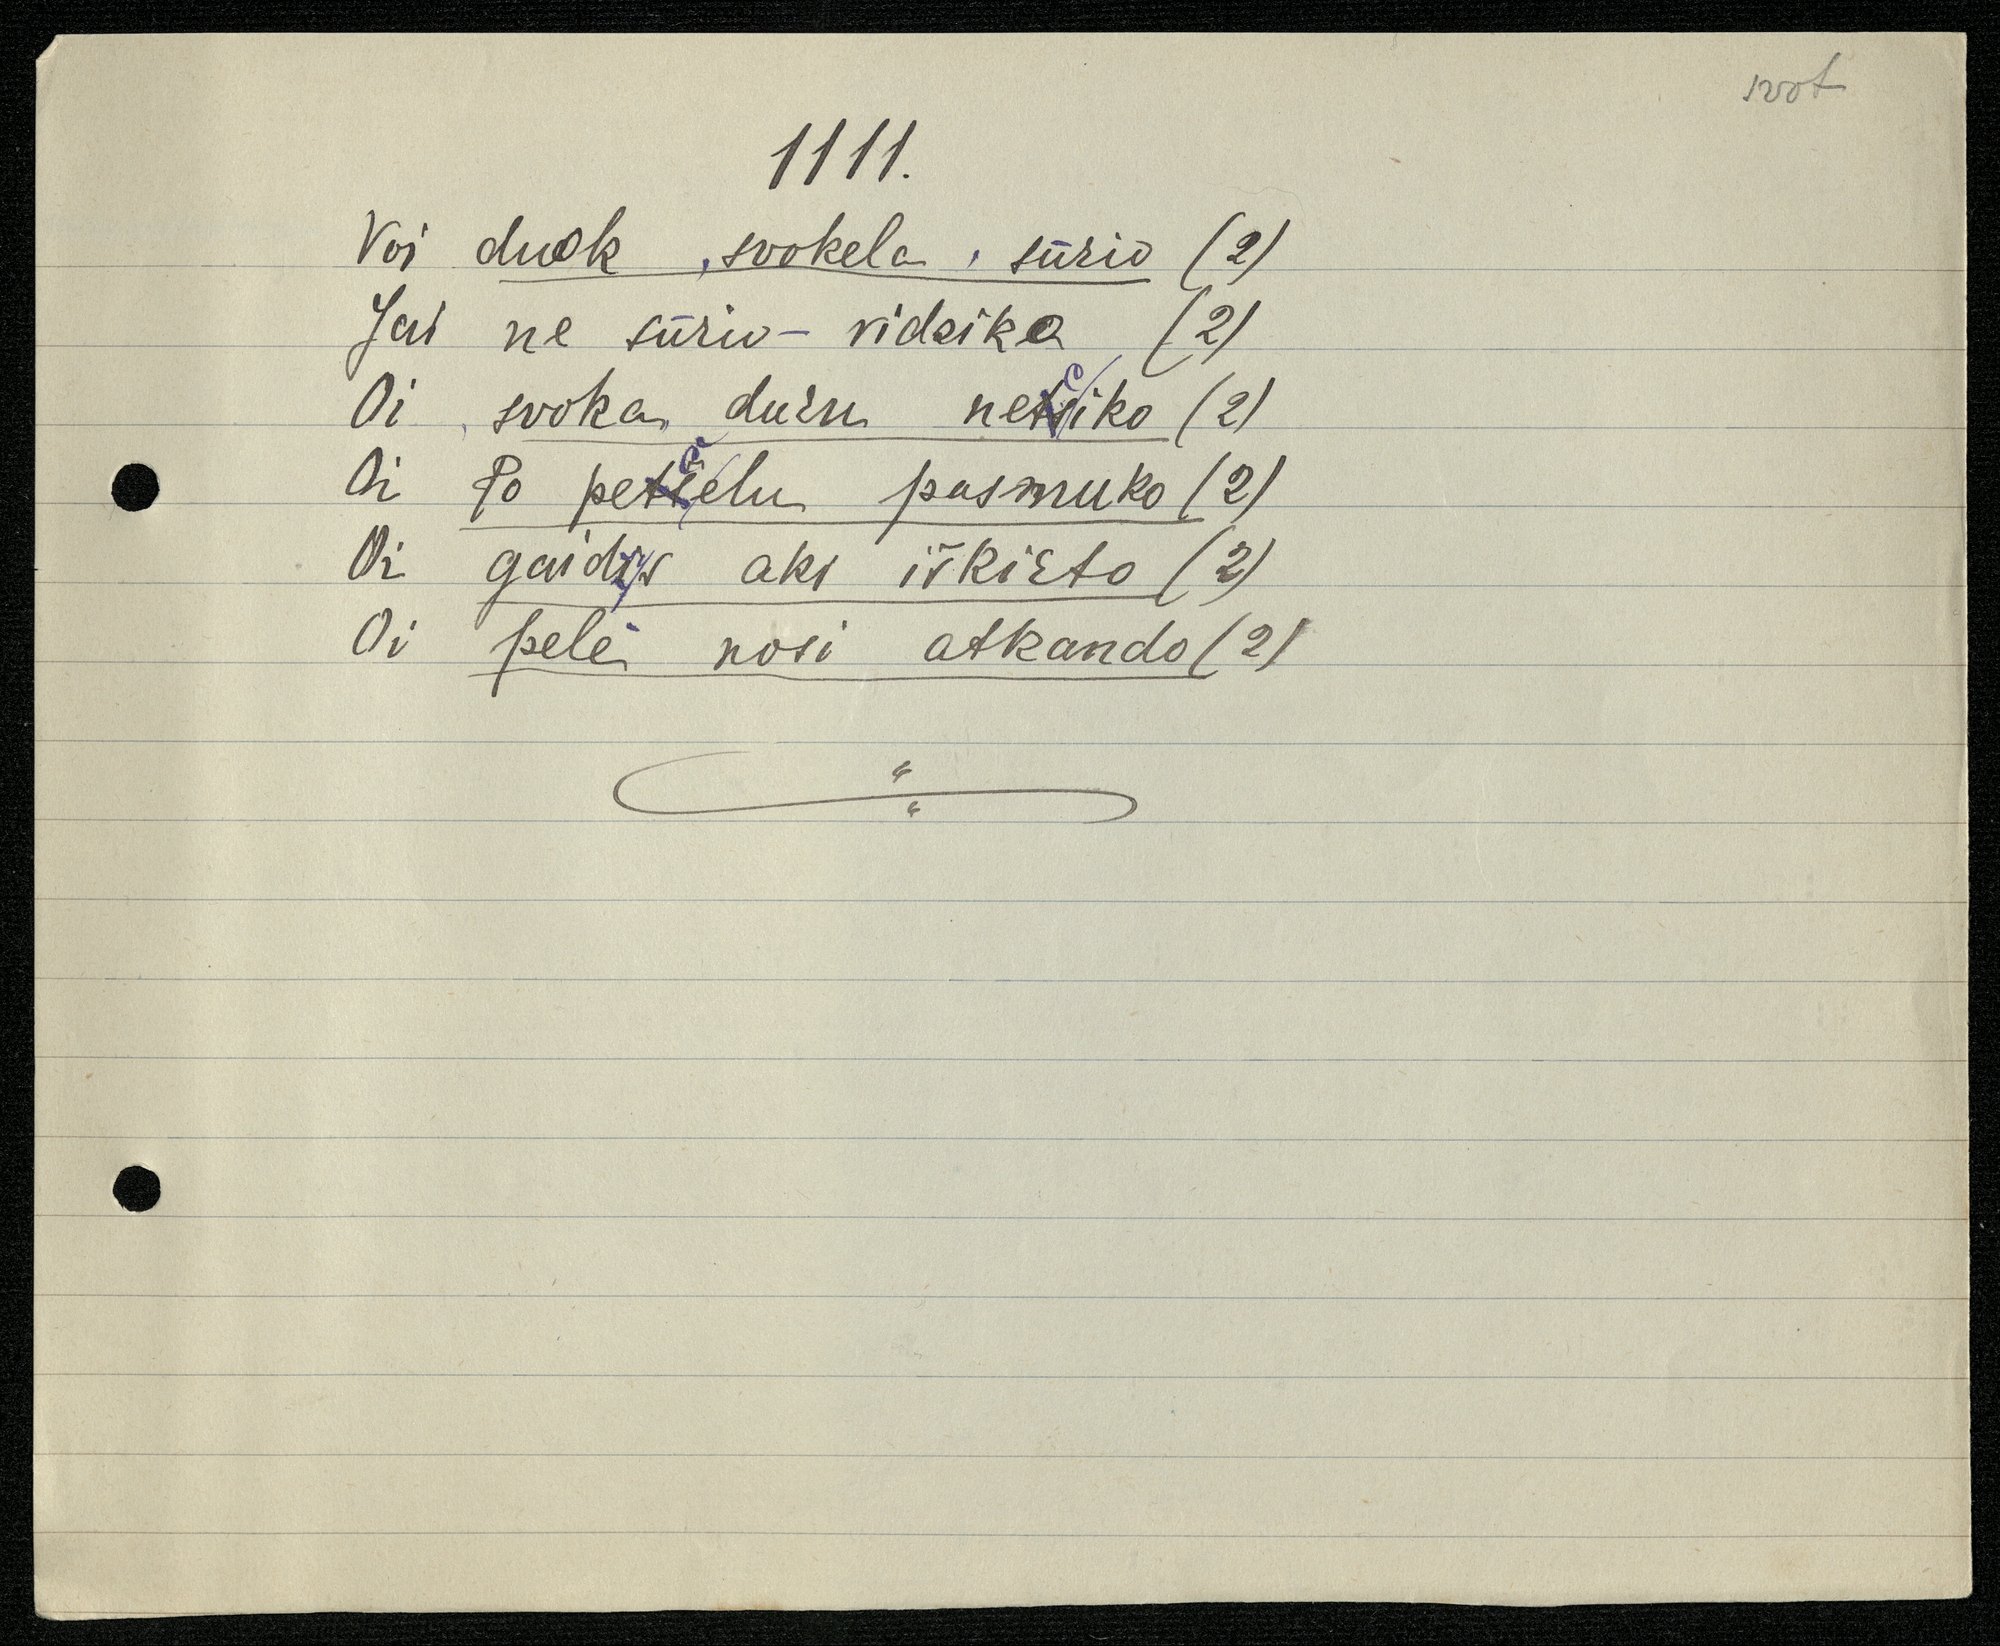 svot
1111.
Voi duok, svokela, sūrio (2)
Jai ne sūrio – vidzika (2)
Oi, svoka, duru neciko (2)
Oi Po pečelu pasmuko (2)
Oi gaidys aki iškirto (2)
Oi pelė nosi atkando (2)